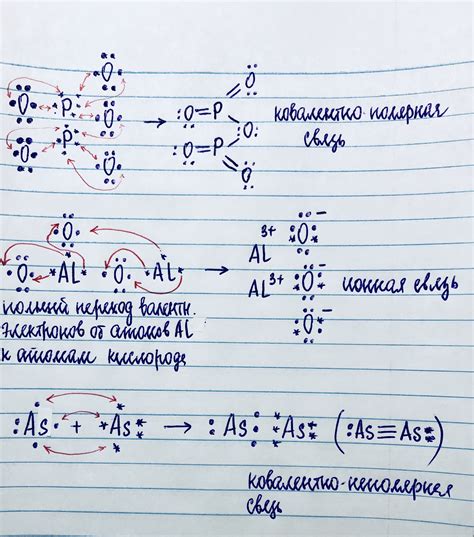 O P O O=P O ковалентно-полярная
O P O O=P O связь
O O
O Al O Al → Al³⁺ O⁻ Al³⁺ O⁻ O⁻ ионная связь
полный переход валентн.
электронов от атомов AL
к атомам кислорода
:As + *As → :As *As (:As≡As:)
ковалентно-неполярная
связь